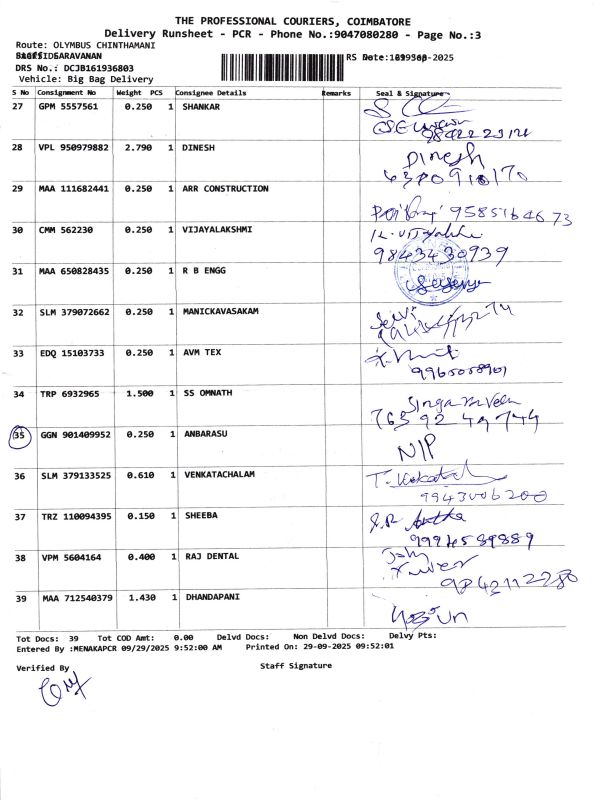 THE PROFESSIONAL COURIERS, COIMBATORE
Delivery Runsheet - PCR - Phone No.:9047080280 - Page No.:3
Route: OLYMBUS CHINTHAMANI
SARAVANAN RS Date: -2025
DRS No.: DCJB161936803
Vehicle: Big Bag Delivery
S No Consignment No Weight PCS Consignee Details Remarks Seal & Signature
27 GPM 5557561 0.250 1 SHANKAR
28 VPL 950979882 2.790 1 DINESH Dinesh
6380910170
29 MAA 111682441 0.250 1 ARR CONSTRUCTION
9585164673
30 CMM 562230 0.250 1 VIJAYALAKSHMI
9843430939
31 MAA 650828435 0.250 1 R B ENGG
32 SLM 379072662 0.250 1 MANICKAVASAKAM
33 EDQ 15103733 0.250 1 AVM TEX
9965058901
34 TRP 6932965 1.500 1 SS OMNATH
35 GGN 901409952 0.250 1 ANBARASU N/P
36 SLM 379133525 0.610 1 VENKATACHALAM
9943006200
37 TRZ 110094395 0.150 1 SHEEBA
38 VPM 5604164 0.400 1 RAJ DENTAL
39 MAA 712540379 1.430 1 DHANDAPANI
Tot Docs: 39 Tot COD Amt: 0.00 Delvd Docs: Non Delvd Docs: Delvy Pts:
Entered By :MENAKAPCR 09/29/2025 9:52:00 AM Printed On: 29-09-2025 09:52:01
Verified By Staff Signature